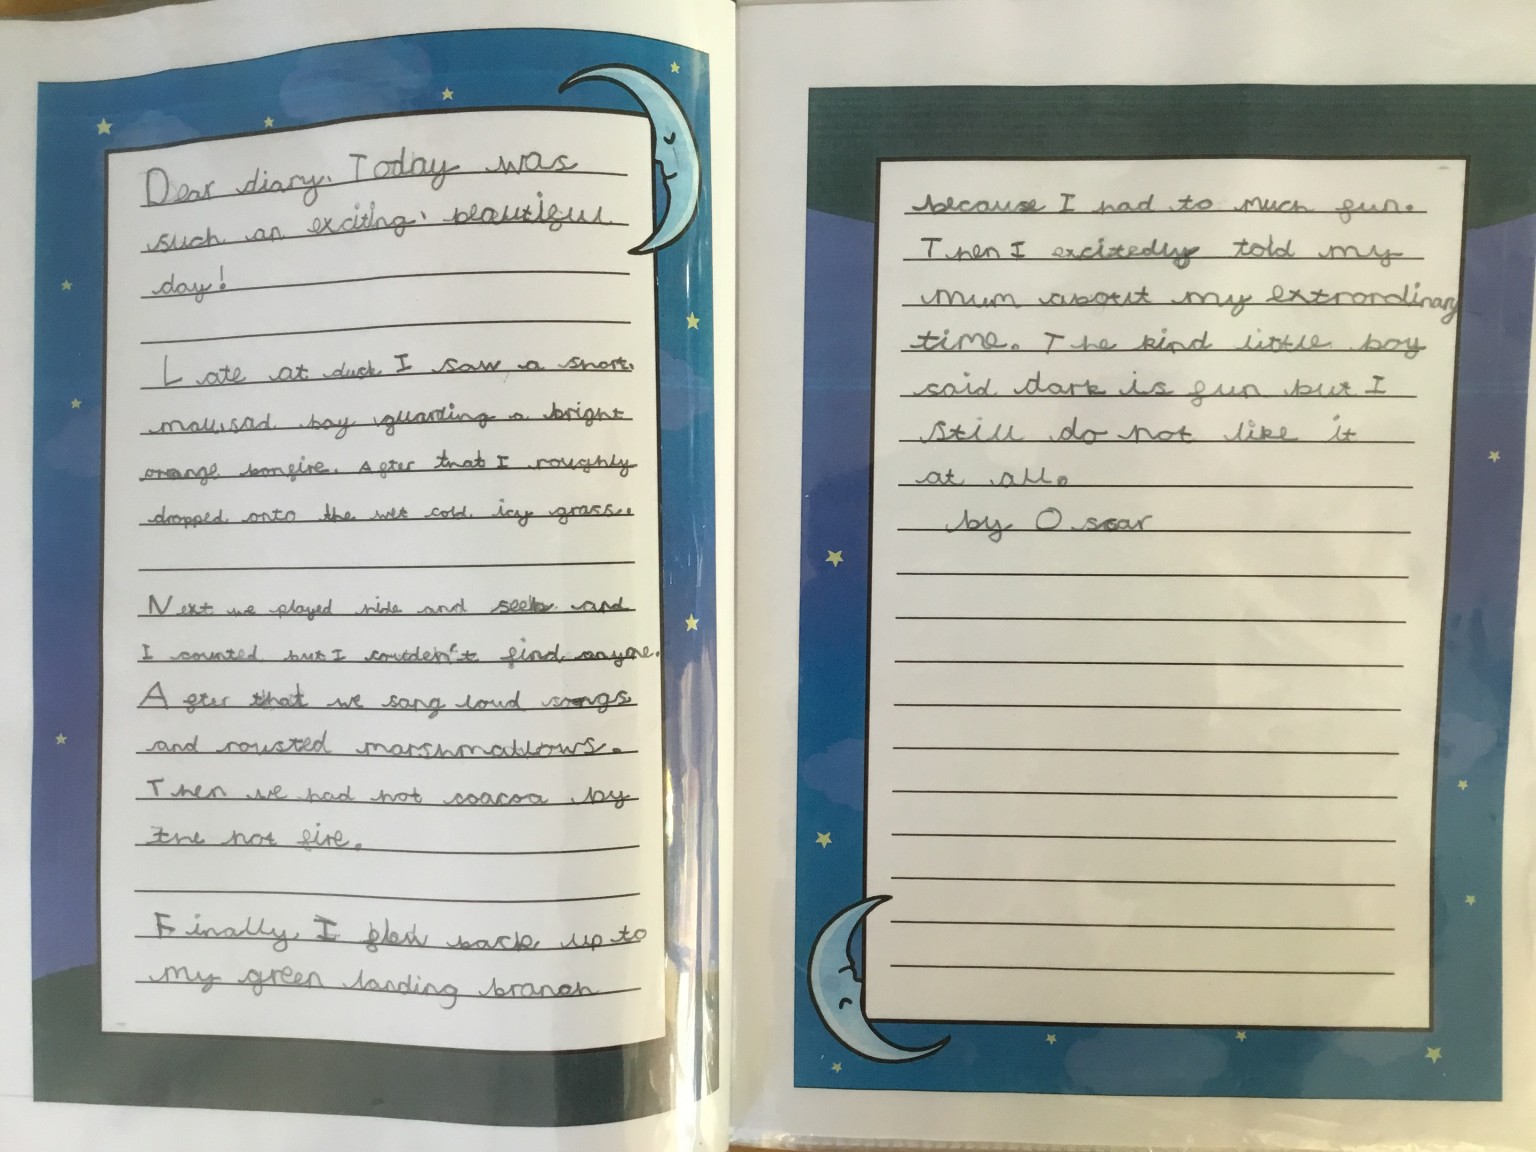 Dear diary. Today was
such an exciting, beautiful
day!
Late at dusk I saw a short,
mall, sad boy guarding a bright
orange bonfire. After that I roughly
dropped onto the wet cold icy grass.
Next we played hide and seek and
I counted but I couldent find anyone.
After that we sang loud songs
and rousted marshmallows.
Then we had hot coacoa by
the hot fire.
Finally, I flew back up to
my green landing branch
because I had to much fun.
Then I excitedly told my
mum about my extrordinary
time. The kind little boy
said dark is fun but I
still do not like it
at all.
by Oscar